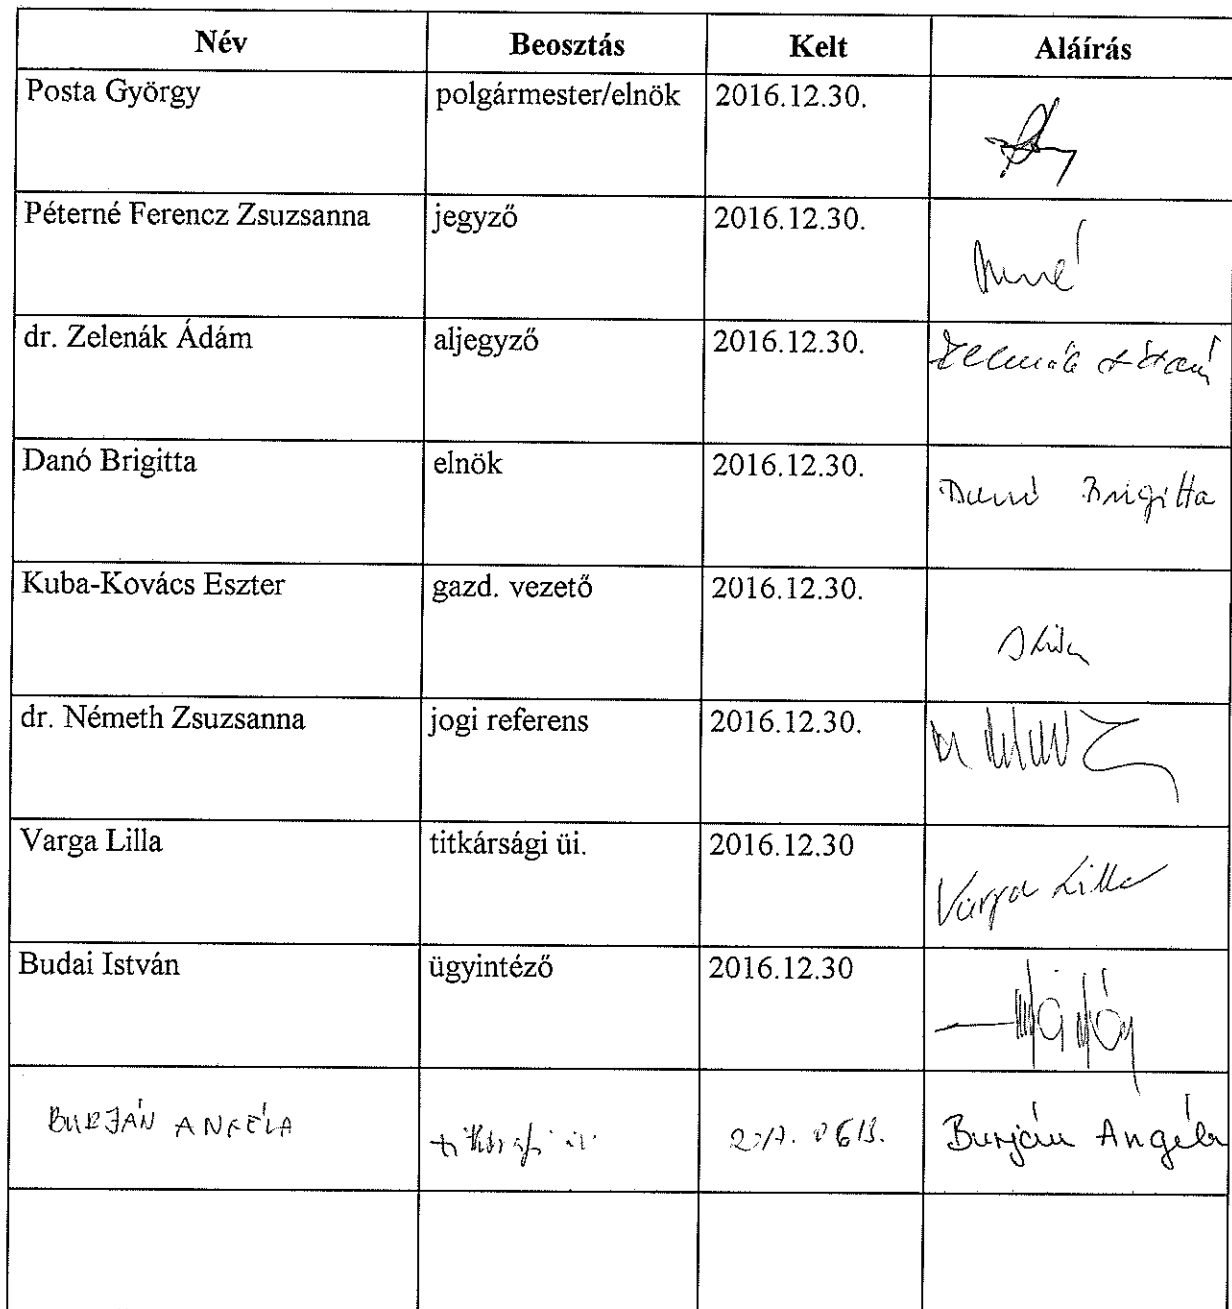 Név Beosztás Kelt Aláírás
Posta György polgármester/elnök 2016.12.30.
Péterné Ferencz Zsuzsanna jegyző 2016.12.30.
dr. Zelenák Ádám aljegyző 2016.12.30.
Zelenák Ádám
Danó Brigitta elnök 2016.12.30.
Danó Brigitta
Kuba-Kovács Eszter gazd. vezető 2016.12.30.
dr. Németh Zsuzsanna jogi referens 2016.12.30.
Varga Lilla titkársági üi. 2016.12.30
Varga Lilla
Budai István ügyintéző 2016.12.30
BURJÁN ANGÉLA titkársági üi. Burján Angéla